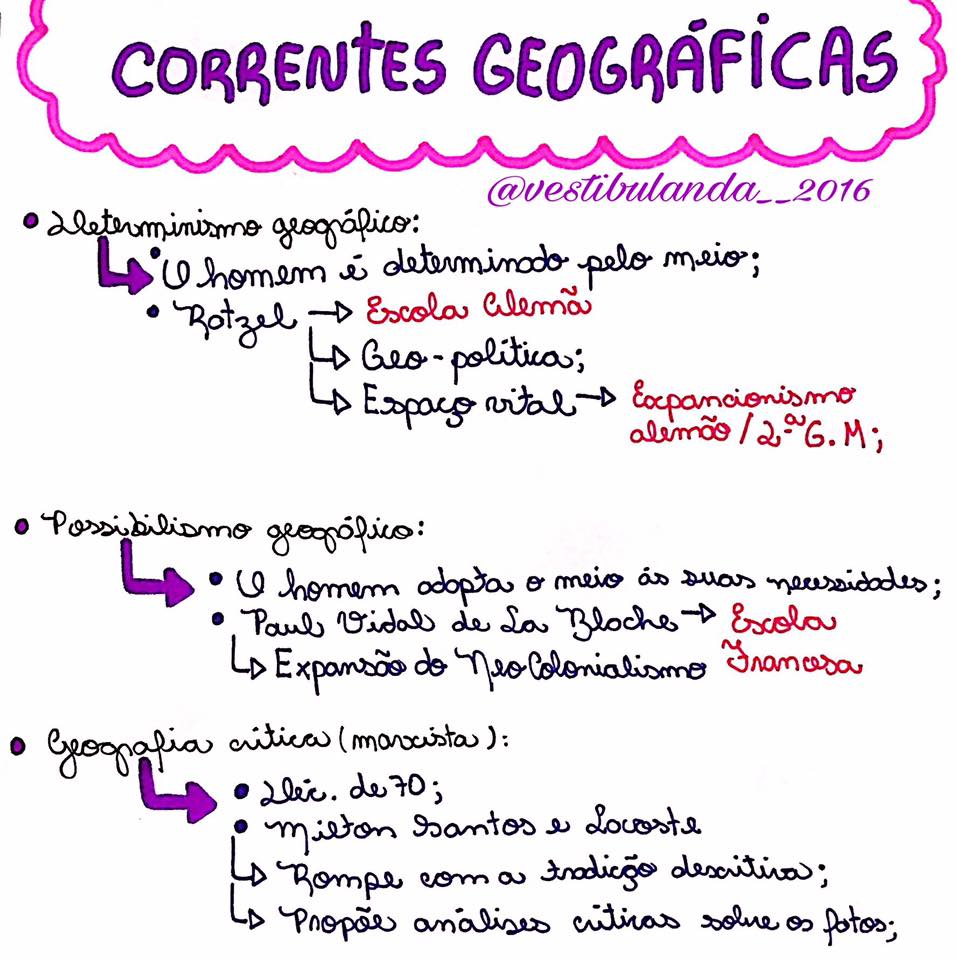 CORRENTES GEOGRÁFICAS
@vestibulanda__2016
• Determinismo geográfico:
• O homem é determinado pelo meio;
• Ratzel → Escola Alemã
→ Geo-política;
→ Espaço vital → Expancionismo
alemão / 2ª G.M;
• Possibilismo geográfico:
• O homem adapta o meio ás suas necessidades;
• Paul Vidal de La Bloche → Escola
→ Expansão do NeoColonialismo Francesa
• Geografia crítica (marxista):
• Déc. de 70;
• Milton Santos e Lacoste
→ Rompe com a tradição descritiva;
→ Propõe análises críticas sobre os fatos;